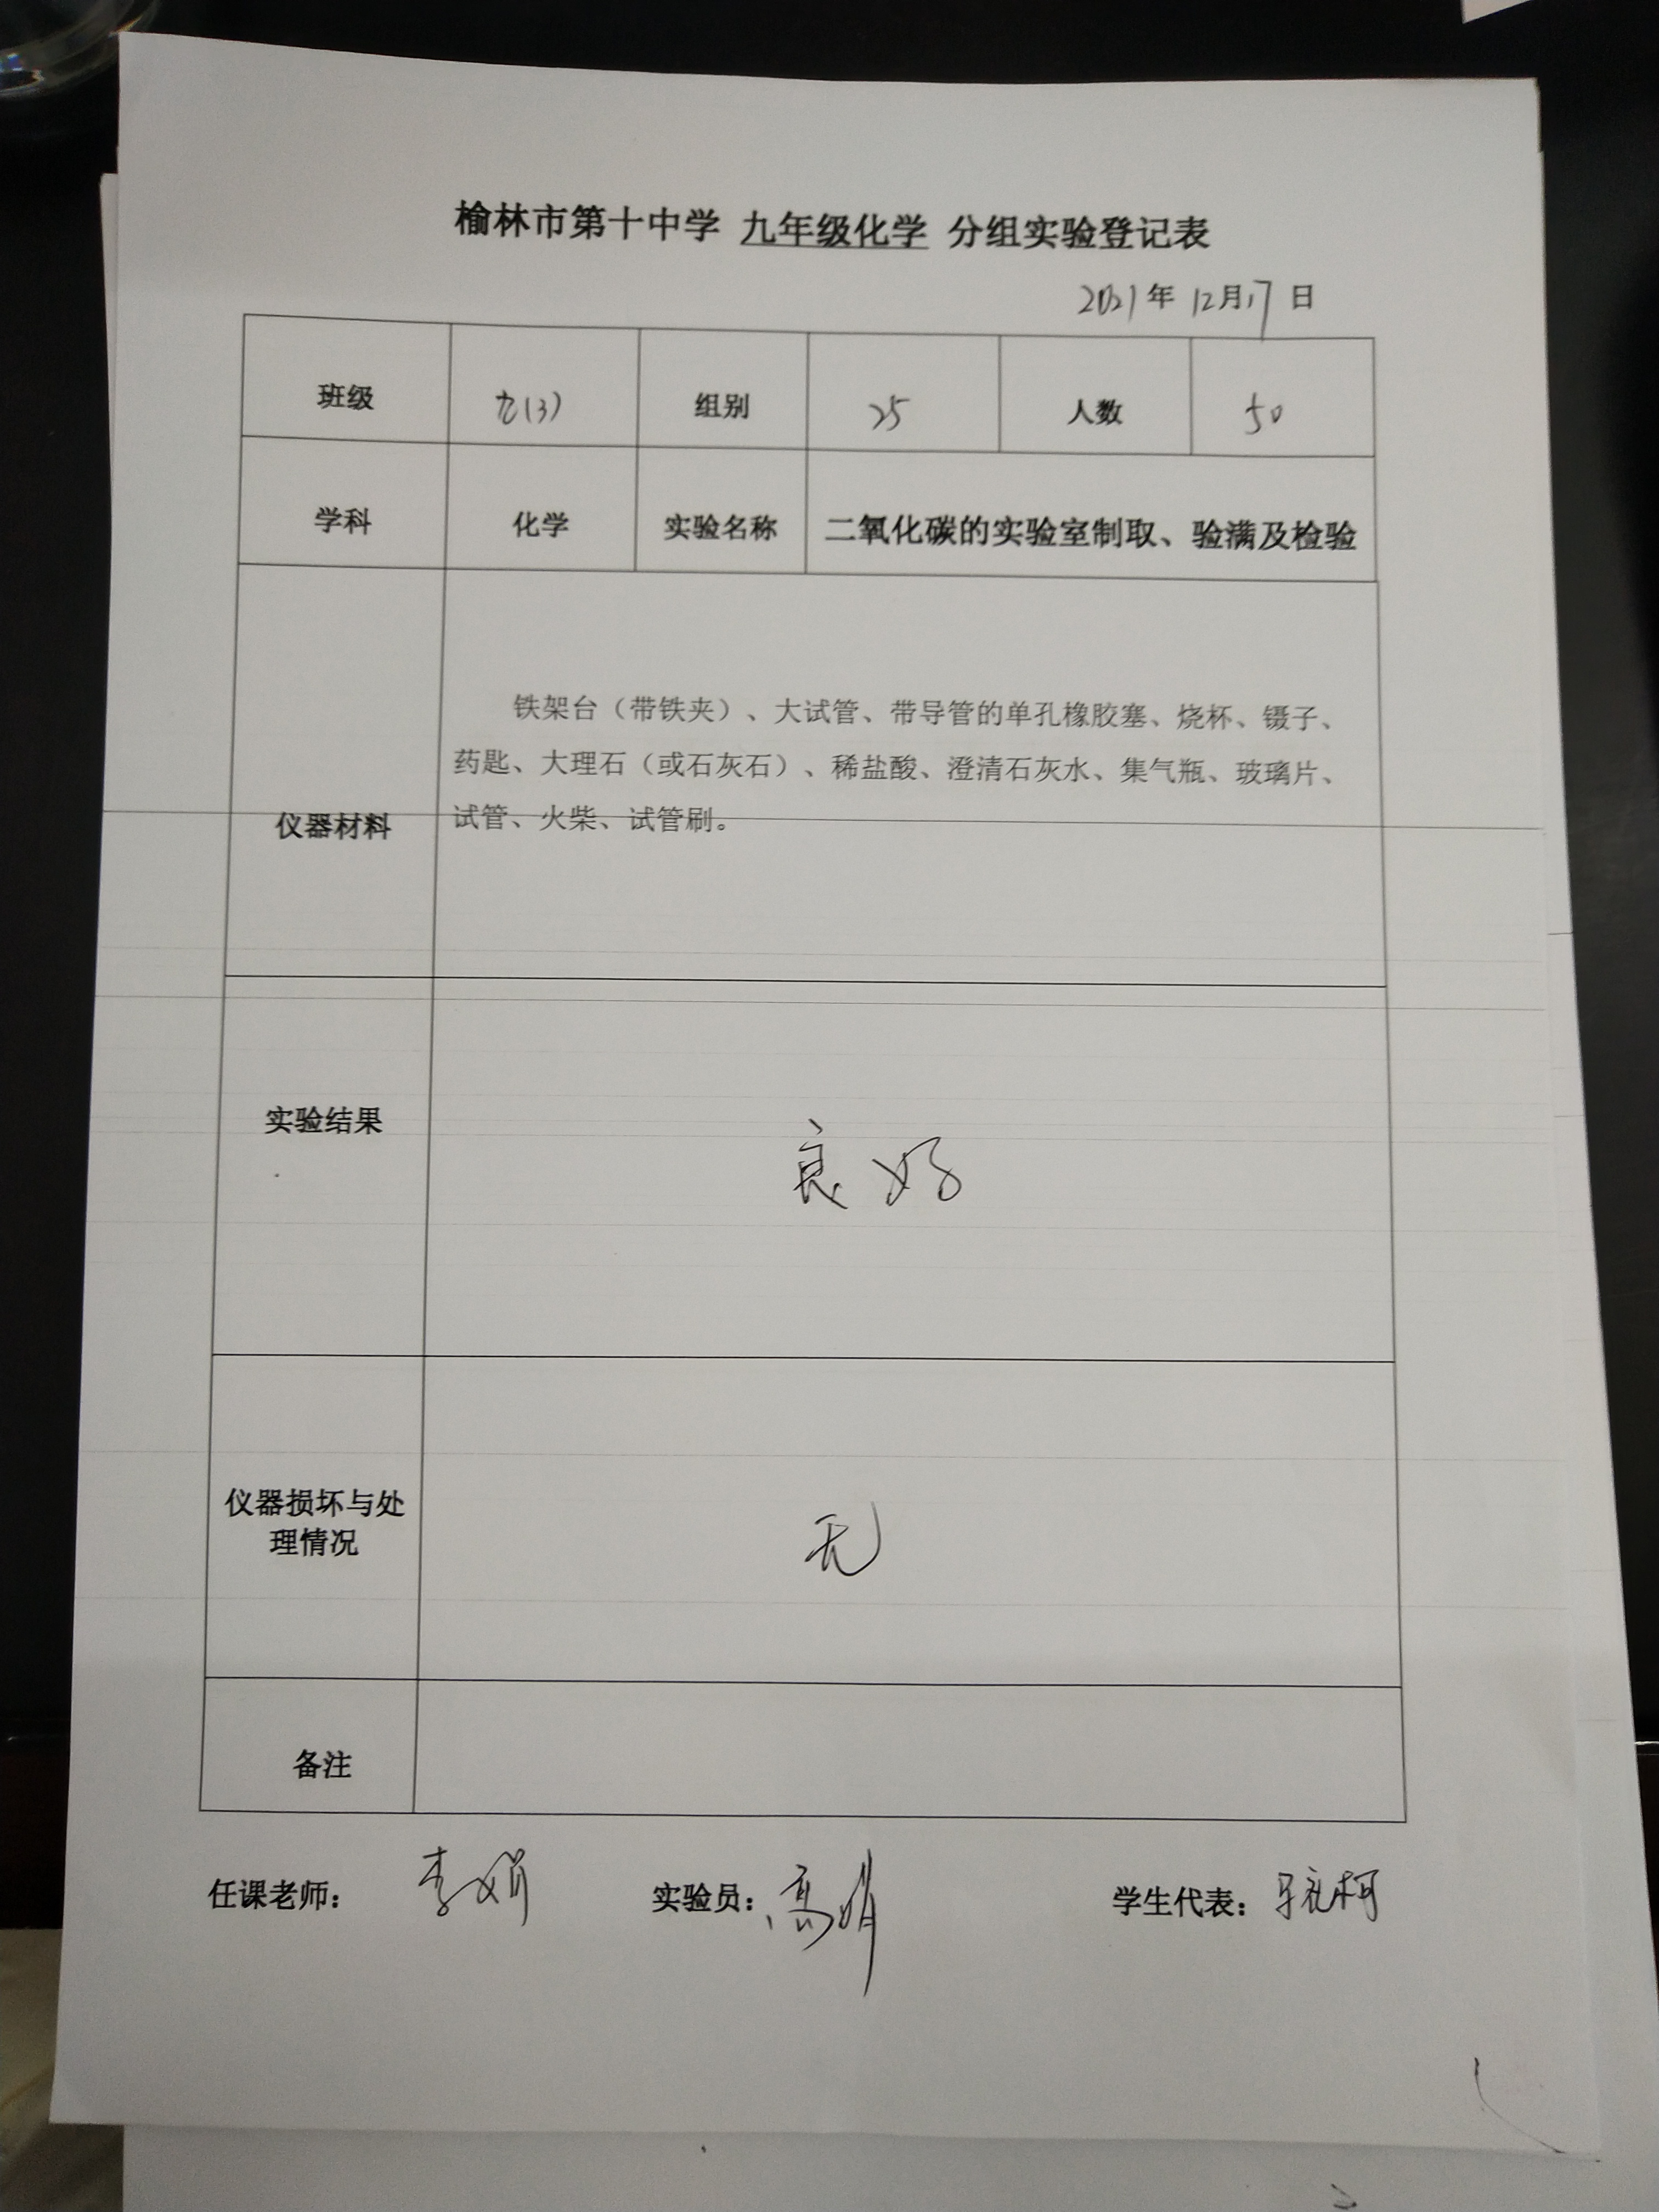 榆林市第十中学 九年级化学 分组实验登记表
2021年 12月17日
班级 九(3) 组别 25 人数 50
学科 化学 实验名称 二氧化碳的实验室制取、验满及检验
铁架台（带铁夹）、大试管、带导管的单孔橡胶塞、烧杯、镊子、
药匙、大理石（或石灰石）、稀盐酸、澄清石灰水、集气瓶、玻璃片、
仪器材料 试管、火柴、试管刷。
实验结果 良好
仪器损坏与处
理情况 无
备注
任课老师： 李娟 实验员： 高娟 学生代表：